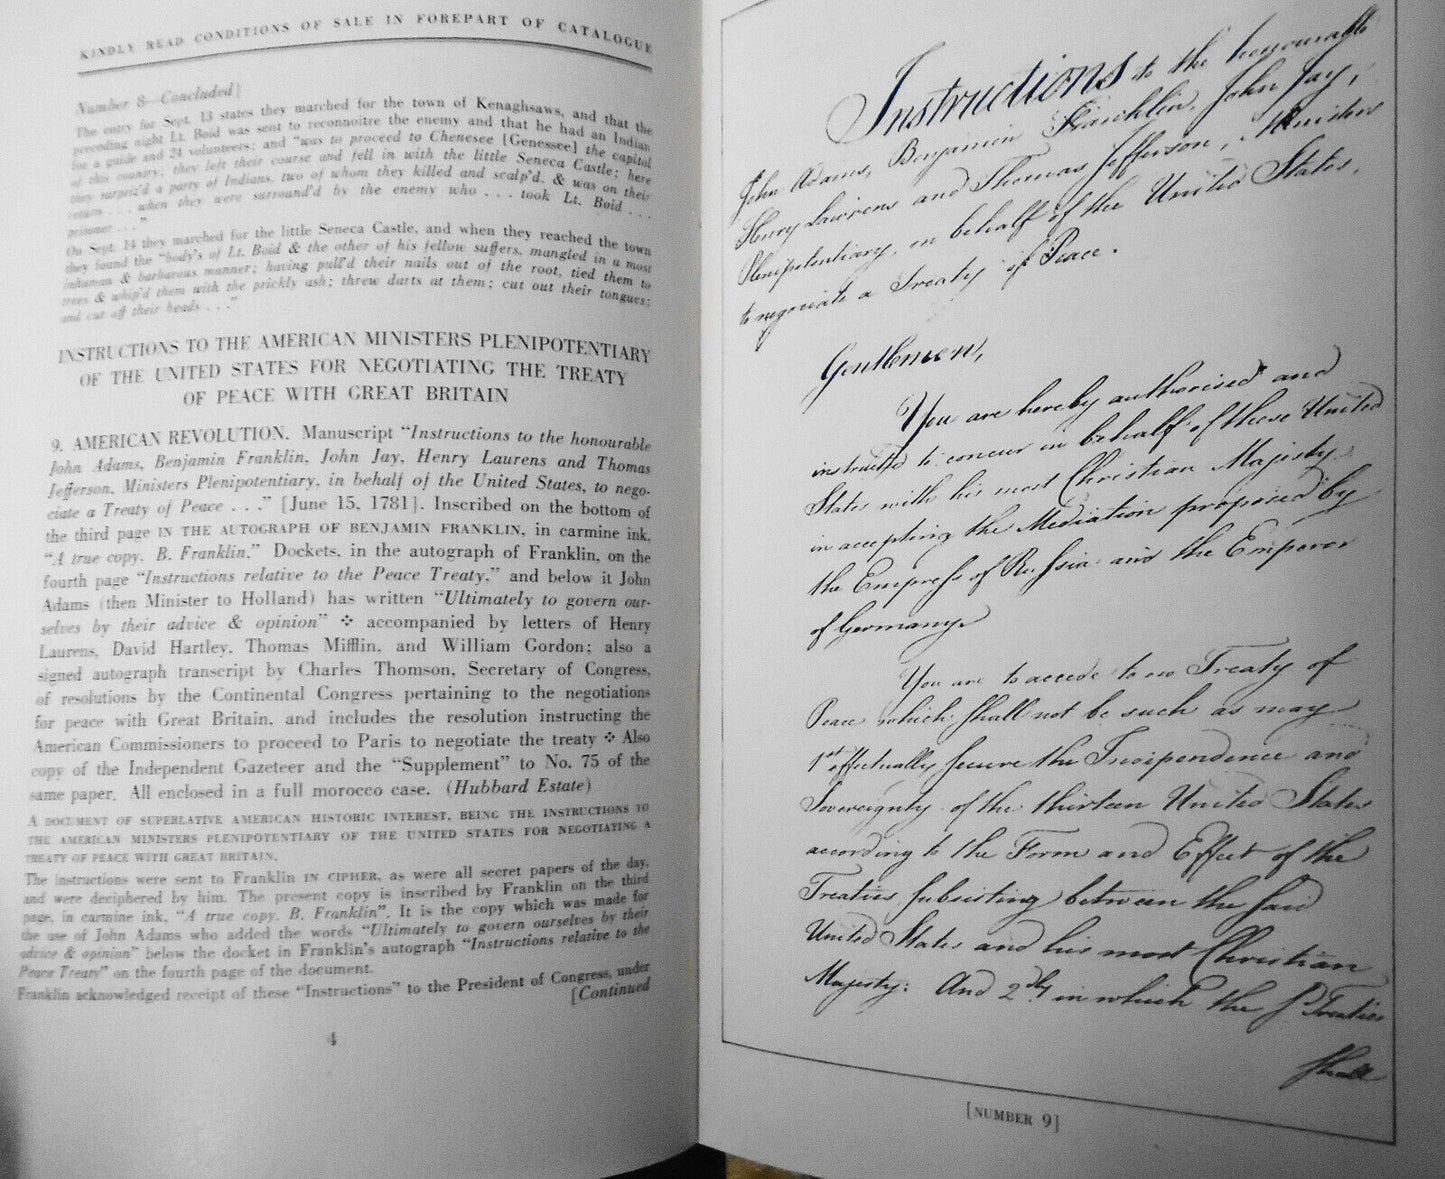 KINDLY READ CONDITIONS OF SALE IN FOREPART OF CATALOGUE
Number 8—Concluded]
The entry for Sept. 13 states they marched for the town of Kenaghsaws, and that the
preceding night Lt. Boid was sent to reconnoitre the enemy and that he had an Indian
for a guide and 24 volunteers; and "was to proceed to Chenesee [Genessee] the capitol
of this country; they left their course and fell in with the little Seneca Castle; here
they surpriz'd a party of Indians, two of whom they killed and scalp'd, & was on their
return . . . when they were surround'd by the enemy who . . . took Lt. Boid . . .
prisoner . . ."
On Sept. 14 they marched for the little Seneca Castle, and when they reached the town
they found the "body's of Lt. Boid & the other of his fellow suffers, mangled in a most
inhuman & barbarous manner; having pull'd their nails out of the root, tied them to
trees & whip'd them with the prickly ash; threw darts at them; cut out their tongues;
and cut off their heads . . ."
INSTRUCTIONS TO THE AMERICAN MINISTERS PLENIPOTENTIARY
OF THE UNITED STATES FOR NEGOTIATING THE TREATY
OF PEACE WITH GREAT BRITAIN
9. AMERICAN REVOLUTION. Manuscript "Instructions to the honourable
John Adams, Benjamin Franklin, John Jay, Henry Laurens and Thomas
Jefferson, Ministers Plenipotentiary, in behalf of the United States, to nego-
ciate a Treaty of Peace . . ." [June 15, 1781]. Inscribed on the bottom of
the third page IN THE AUTOGRAPH OF BENJAMIN FRANKLIN, in carmine ink,
"A true copy. B. Franklin." Dockets, in the autograph of Franklin, on the
fourth page "Instructions relative to the Peace Treaty," and below it John
Adams (then Minister to Holland) has written "Ultimately to govern our-
selves by their advice & opinion" ❖ accompanied by letters of Henry
Laurens, David Hartley, Thomas Mifflin, and William Gordon; also a
signed autograph transcript by Charles Thomson, Secretary of Congress,
of resolutions by the Continental Congress pertaining to the negotiations
for peace with Great Britain, and includes the resolution instructing the
American Commissioners to proceed to Paris to negotiate the treaty ❖ Also
copy of the Independent Gazeteer and the "Supplement" to No. 75 of the
same paper. All enclosed in a full morocco case. (Hubbard Estate)
A DOCUMENT OF SUPERLATIVE AMERICAN HISTORIC INTEREST, BEING THE INSTRUCTIONS TO
THE AMERICAN MINISTERS PLENIPOTENTIARY OF THE UNITED STATES FOR NEGOTIATING A
TREATY OF PEACE WITH GREAT BRITAIN.
The instructions were sent to Franklin IN CIPHER, as were all secret papers of the day,
and were deciphered by him. The present copy is inscribed by Franklin on the third
page, in carmine ink, "A true copy. B. Franklin". It is the copy which was made for
the use of John Adams who added the words "Ultimately to govern ourselves by their
advice & opinion" below the docket in Franklin's autograph "Instructions relative to the
Peace Treaty" on the fourth page of the document.
Franklin acknowledged receipt of these "Instructions" to the President of Congress, under
[Continued
4
Instructions to the honourable
John Adams, Benjamin Francklin, John Jay,
Henry Lawrens and Thomas Jefferson, Ministers
Plenipotentiary, in behalf of the United States,
to negociate a Treaty of Peace.
Gentlemen,
You are hereby authorised and
instructed to concur in behalf of these United
States with his most Christian Majesty
in accepting the Mediation proposed by
the Empress of Russia and the Emperor
of Germany.
You are to accede to no Treaty of
Peace which shall not be such as may
1st effectually secure the Independence and
Sovereignty of the thirteen United States
according to the Form and Effect of the
Treaties subsisting between the said
United States and his most Christian
Majesty: And 2dly in which the sd. Treaties
shall
[NUMBER 9]